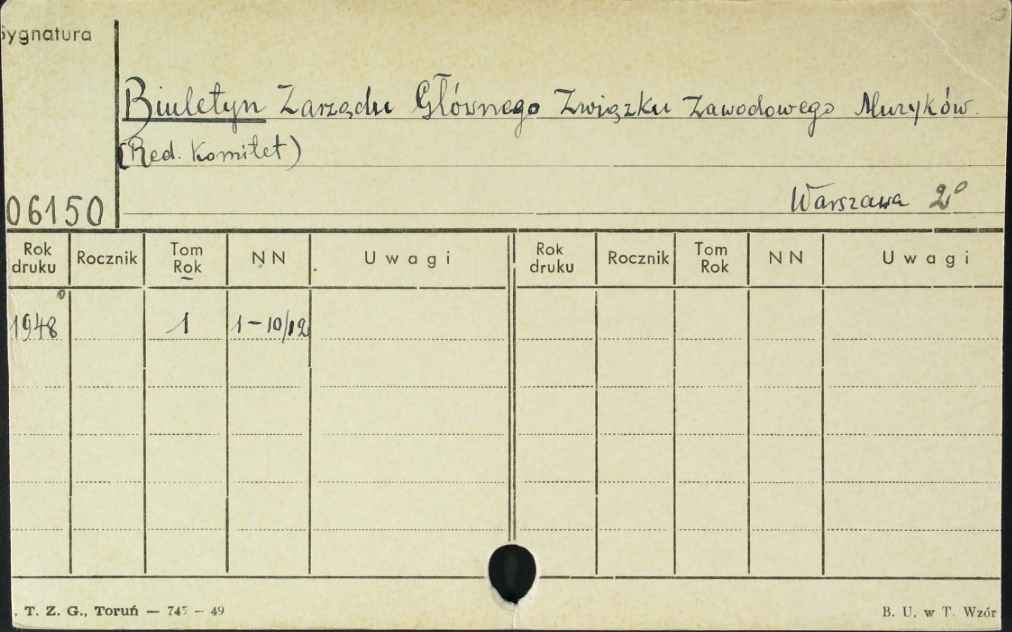 Sygnatura
Biuletyn Zarządu Głównego Związku Zawodowego Muzyków.
(Red. Komitet)
06150
Warszawa 2°
Rok druku Rocznik Tom Rok NN Uwagi Rok druku Rocznik Tom Rok NN Uwagi
1948° 1 1-10/12
. T. Z. G., Toruń — 745 — 49 B. U. w T. Wzór